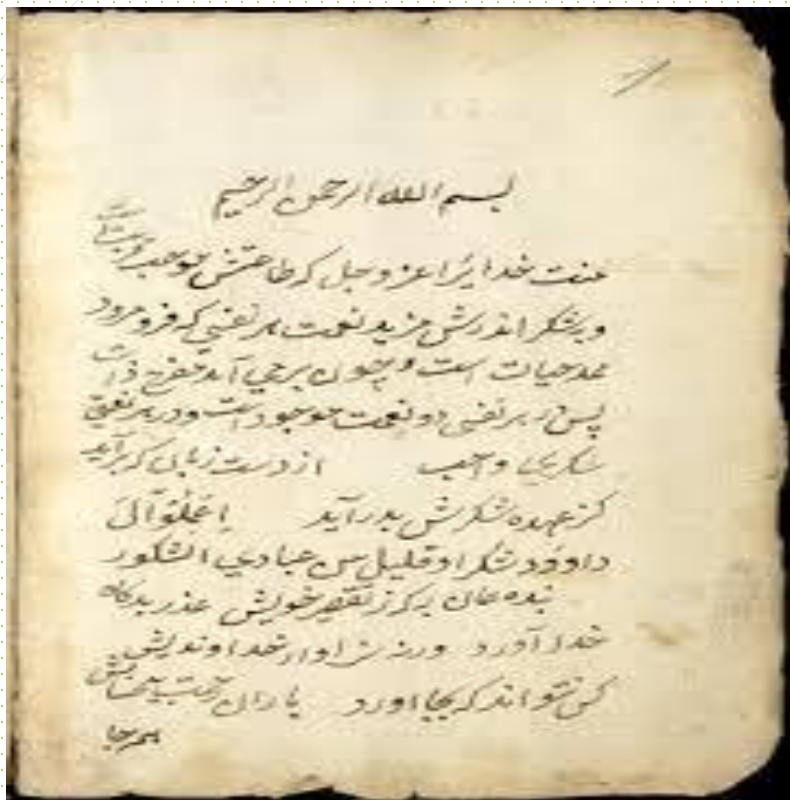 بسم الله الرحمن الرحیم
منت خدایرا عز و جل که طاعتش موجب قربتست
و بشکر اندرش مزید نعمت هر نفسی که فرو میرود
ممد حیات است و چون برمی آید مفرح ذات
پس در هر نفسی دو نعمت موجود است و در هر نعمتی
شکری واجب از دست زبان که برآید
کز عهده شکرش بدر آید اِعْمَلُوْآلَ
داوٗد شکرا و قلیل من عبادي الشكور
بنده همان به که ز تقصیر خویش عذر بدرگاه
خدا آورد ورنه سزاوار خداوندیش
کس نتواند که بجا اورد باران رحمت بیحسابش
همه جا